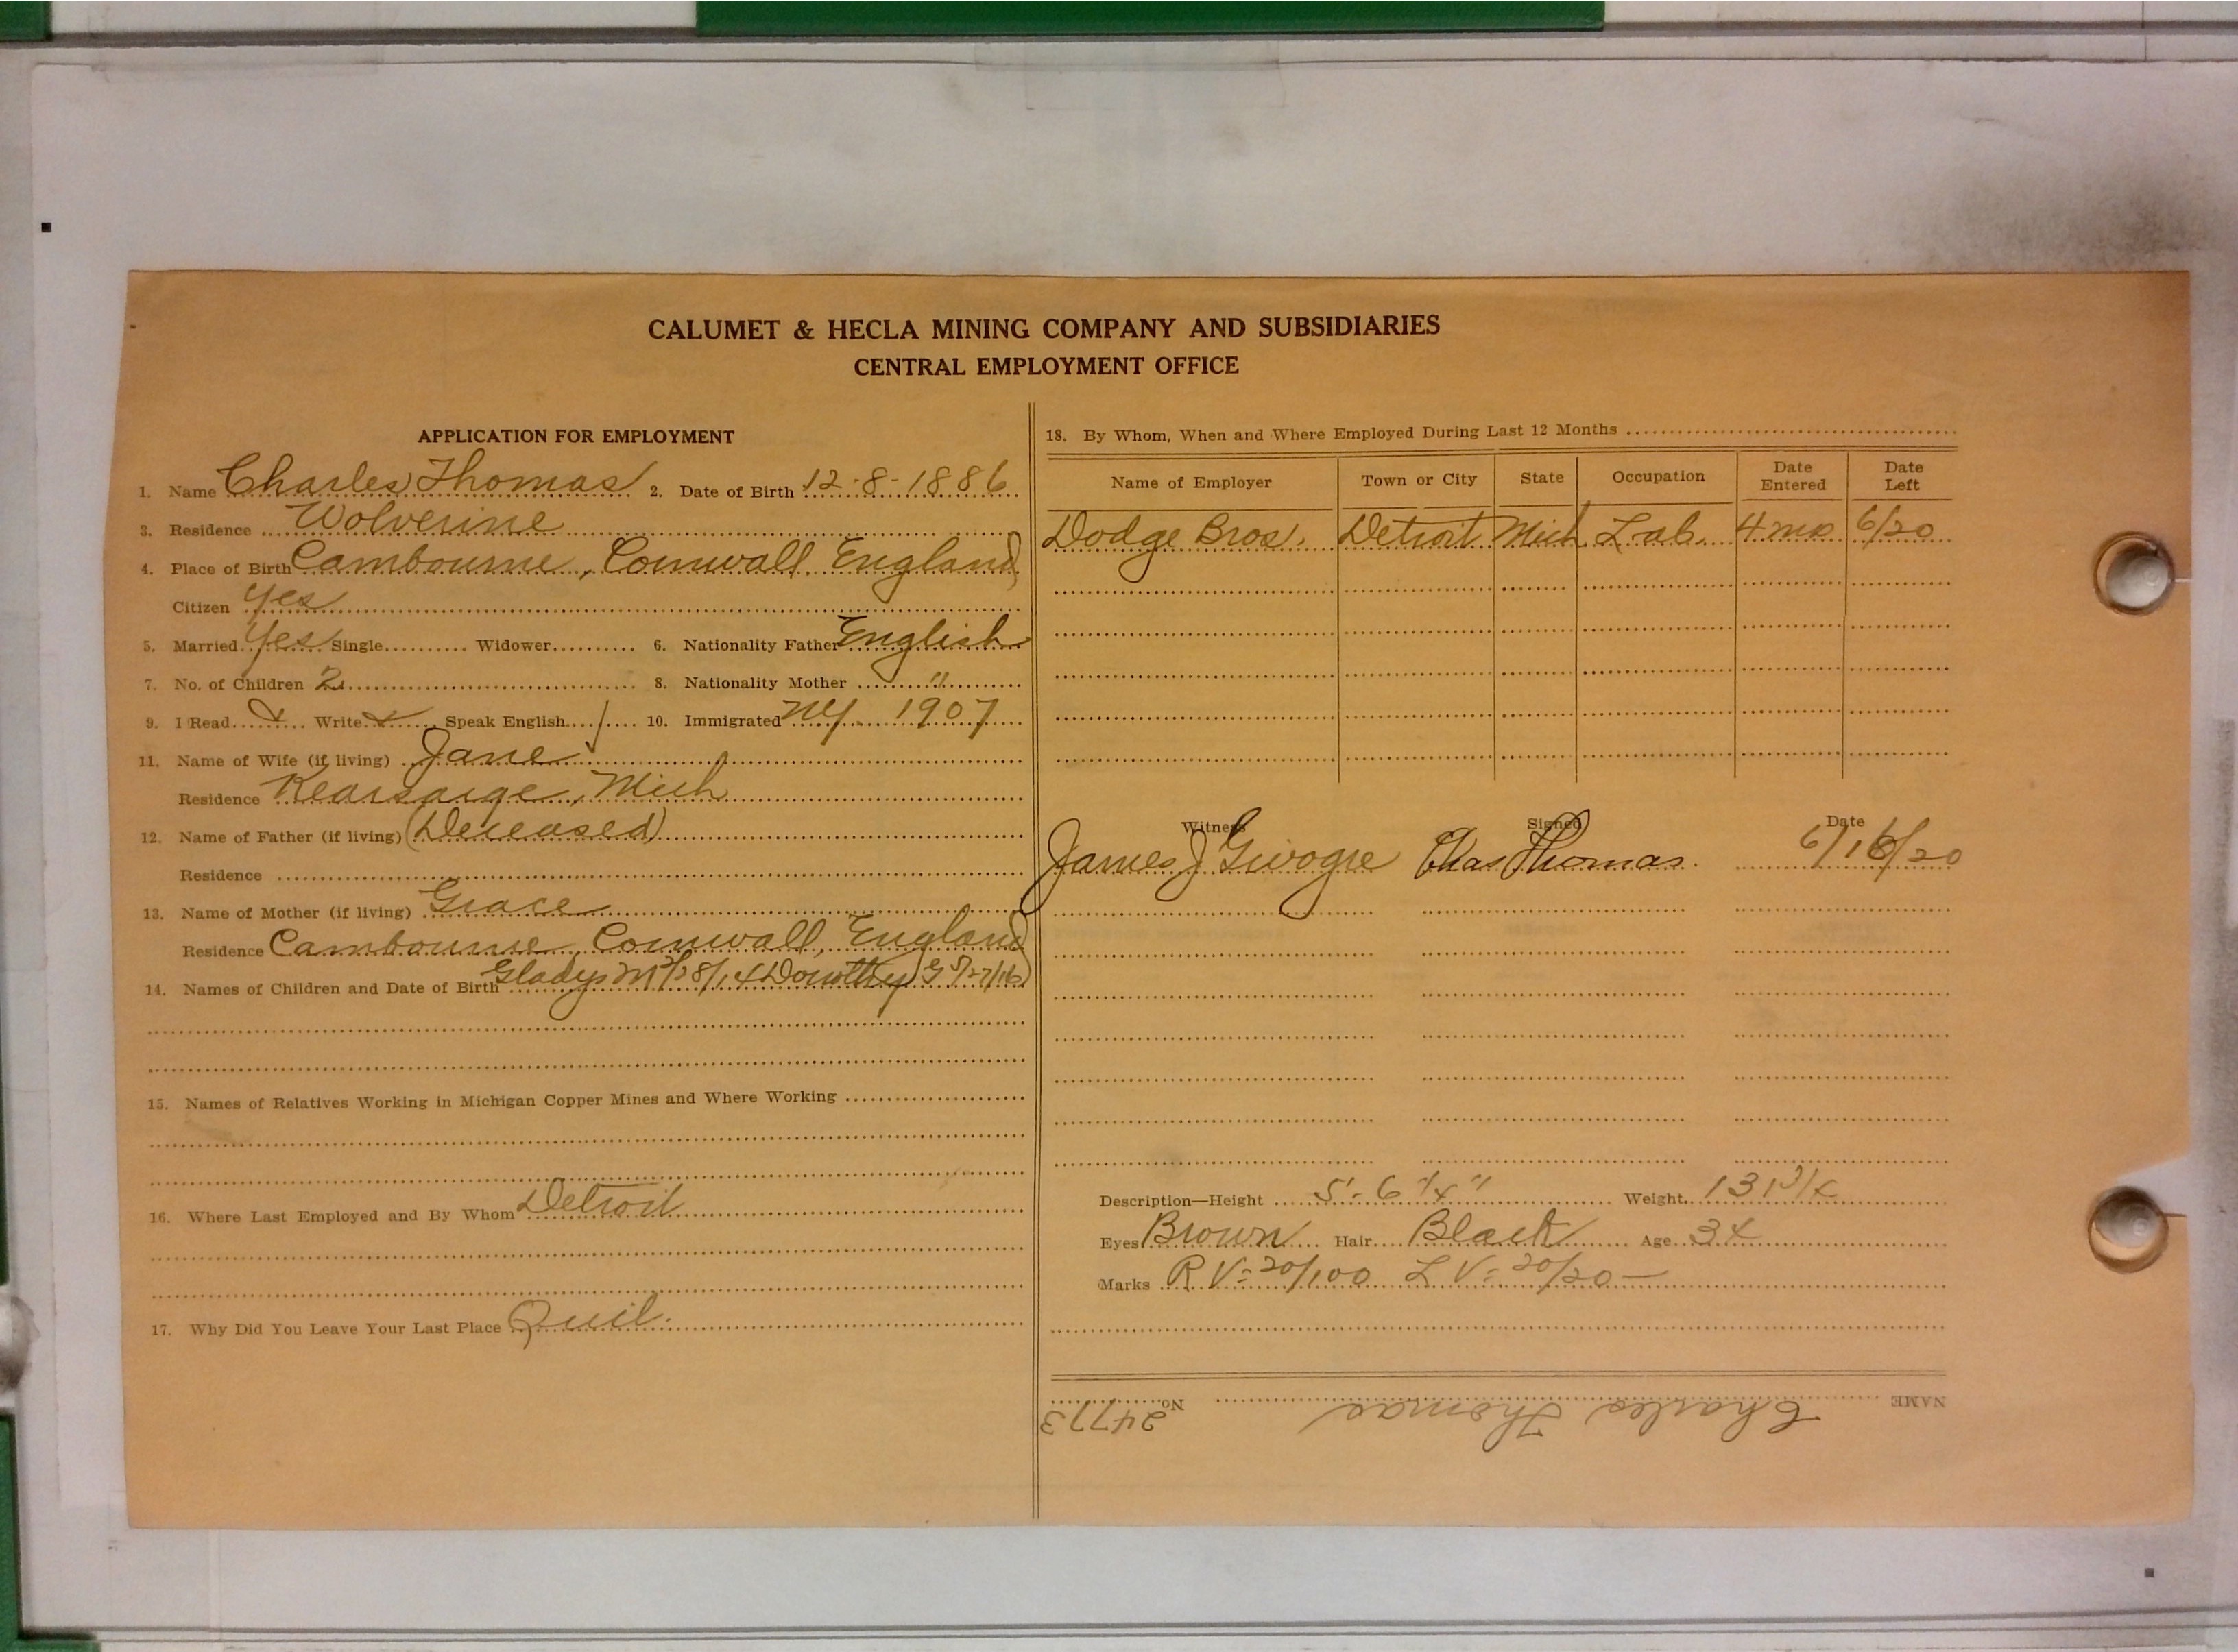 CALUMET & HECLA MINING COMPANY AND SUBSIDIARIES
CENTRAL EMPLOYMENT OFFICE
APPLICATION FOR EMPLOYMENT
1. Name Charles Thomas 2. Date of Birth 12-8-1886
3. Residence Wolverine
4. Place of Birth Cambourne, Cornwall, England
Citizen Yes
5. Married Yes Single Widower 6. Nationality Father English
7. No. of Children 2 8. Nationality Mother "
9. I Read Write Speak English / 10. Immigrated NY 1907
11. Name of Wife (if living) Jane
Residence Kearsarge, Mich
12. Name of Father (if living) (Deceased)
Residence
13. Name of Mother (if living) Grace
Residence Cambourne, Cornwall, England
14. Names of Children and Date of Birth Gladys M Dorothy G
15. Names of Relatives Working in Michigan Copper Mines and Where Working
16. Where Last Employed and By Whom Detroit
17. Why Did You Leave Your Last Place Quit.
18. By Whom, When and Where Employed During Last 12 Months
Name of Employer Town or City State Occupation Date Entered Date Left
Dodge Bros. Detroit Mich Lab. 4 mo 6/20
Witness Signed Date
James J Chas Thomas. 6/16/20
Description—Height 5'-6 1/4" Weight 131 3/4
Eyes Brown Hair Black Age 34
Marks R V= 20/100 L V= 20/20 —
NAME Charles Thomas No. 24773